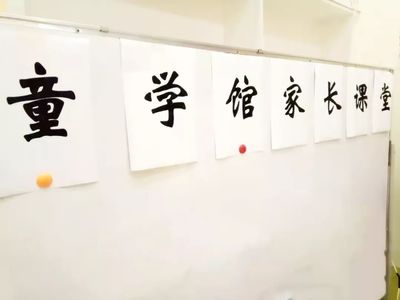 童学馆家长课堂